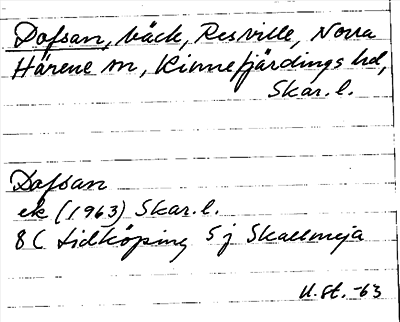 Dofsan, bäck, Resville, Norra
Härene sn, Kinnefjärdings hd,
Skar. l.
Dofsan
ek (1963) Skar. l.
8C Lidköping 5j Skallmeja
U. St. -63